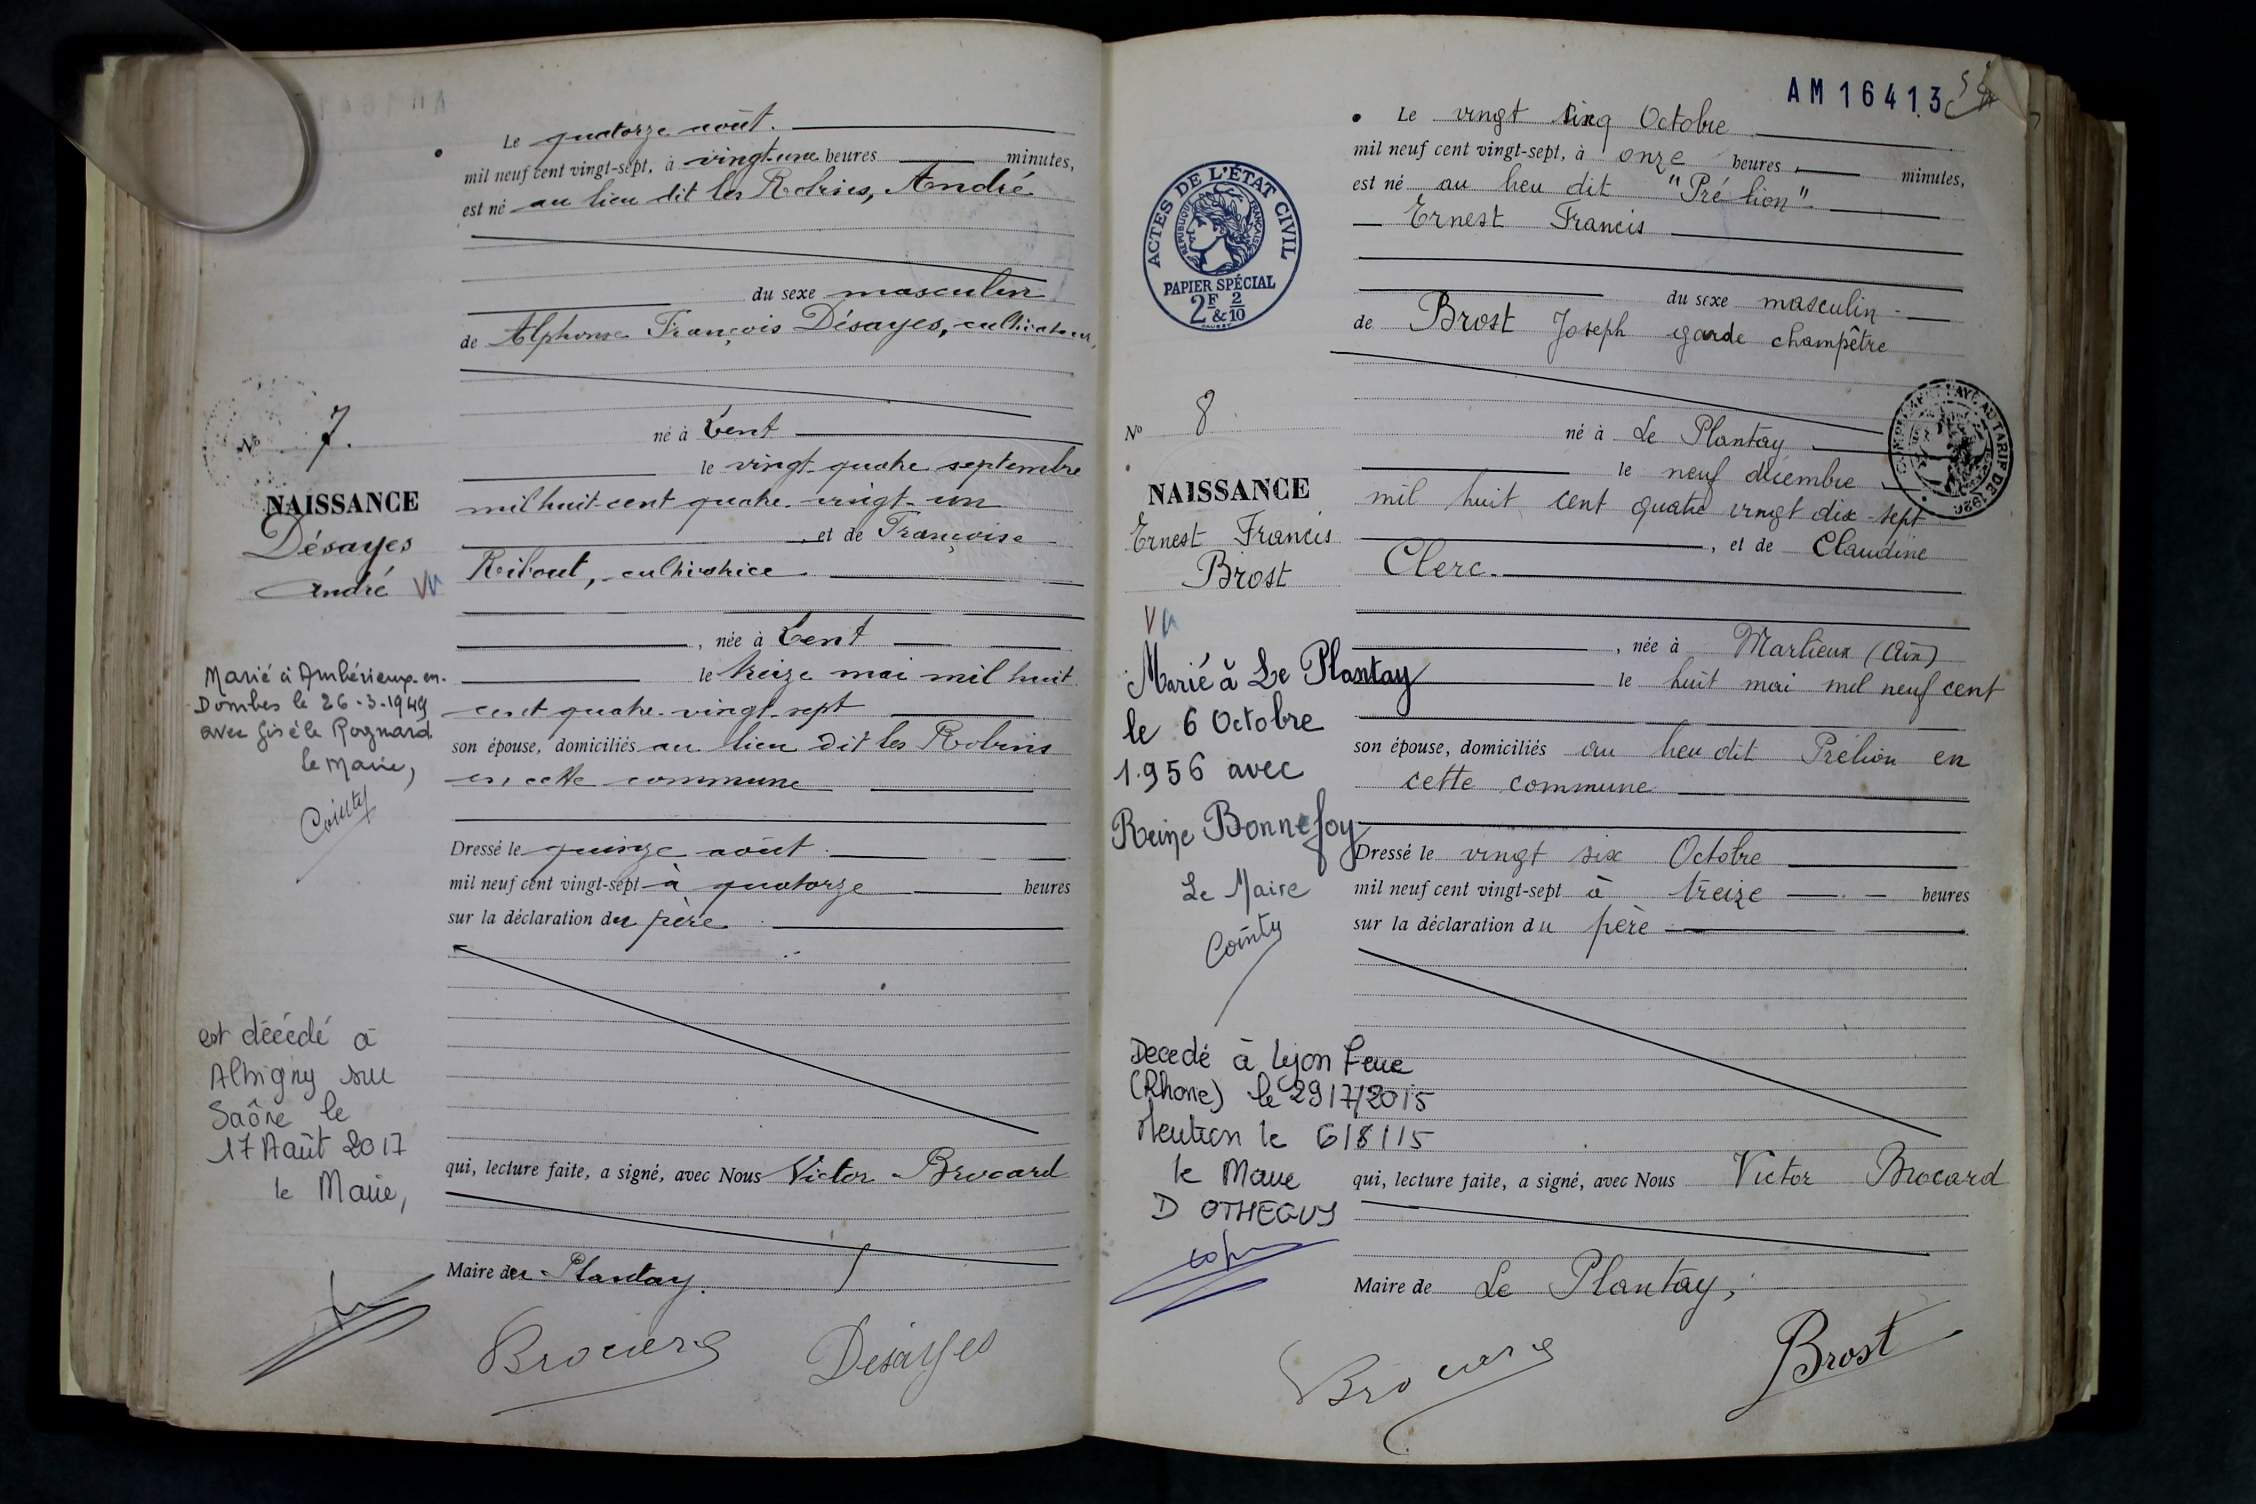 Le quatorze août.
mil neuf cent vingt-sept, à vingt-une heures minutes,
est né au lieu dit les Robins, André
du sexe masculin
de Alphonse François Désayes, cultivateur,
né à Lent
le vingt quatre septembre
mil huit cent quatre-vingt-un
, et de Françoise
Ribout, cultivatrice
, née à Lent
le treize mai mil huit
cent quatre-vingt-sept
son épouse, domiciliés au lieu dit les Robins
en cette commune
Dressé le quinze août
mil neuf cent vingt-sept à quatorze heures
sur la déclaration du père
qui, lecture faite, a signé, avec Nous Victor Brocard
Maire du Plantay.
Désayes
No 7.
NAISSANCE
Désayes
André Vu
Marié à Ambérieux-en-
Dombes le 26-3-1949
avec Gisèle Rognard
le Maire,
Cointy
est décédé à
Albigny sur
Saône le
17 Août 2017
le Maire,
AM 16413
Le vingt cinq Octobre
mil neuf cent vingt-sept, à onze heures minutes,
est né au lieu dit "Pré lion"
Ernest Francis
du sexe masculin
de Brost Joseph garde champêtre
né à Le Plantay
le neuf décembre
mil huit cent quatre vingt dix-sept
, et de Claudine
Clerc
, née à Marlieux (Ain)
le huit mai mil neuf cent
son épouse, domiciliés au lieu dit Prélion en
cette commune
Dressé le vingt six Octobre
mil neuf cent vingt-sept à treize heures
sur la déclaration du père
qui, lecture faite, a signé, avec Nous Victor Brocard
Maire de Le Plantay,
Brost
ACTES DE L'ÉTAT CIVIL
RÉPUBLIQUE FRANÇAISE
PAPIER SPÉCIAL
2F & 2/10
No 8
NAISSANCE
Ernest Francis
Brost
Vu
Marié à Le Plantay
le 6 Octobre
1956 avec
Reine Bonnefoy
Le Maire
Cointy
Decedé à Lyon 7eme
(Rhone) le 29/7/2015
Mention le 6/8/15
le Maire
D OTHEGUY